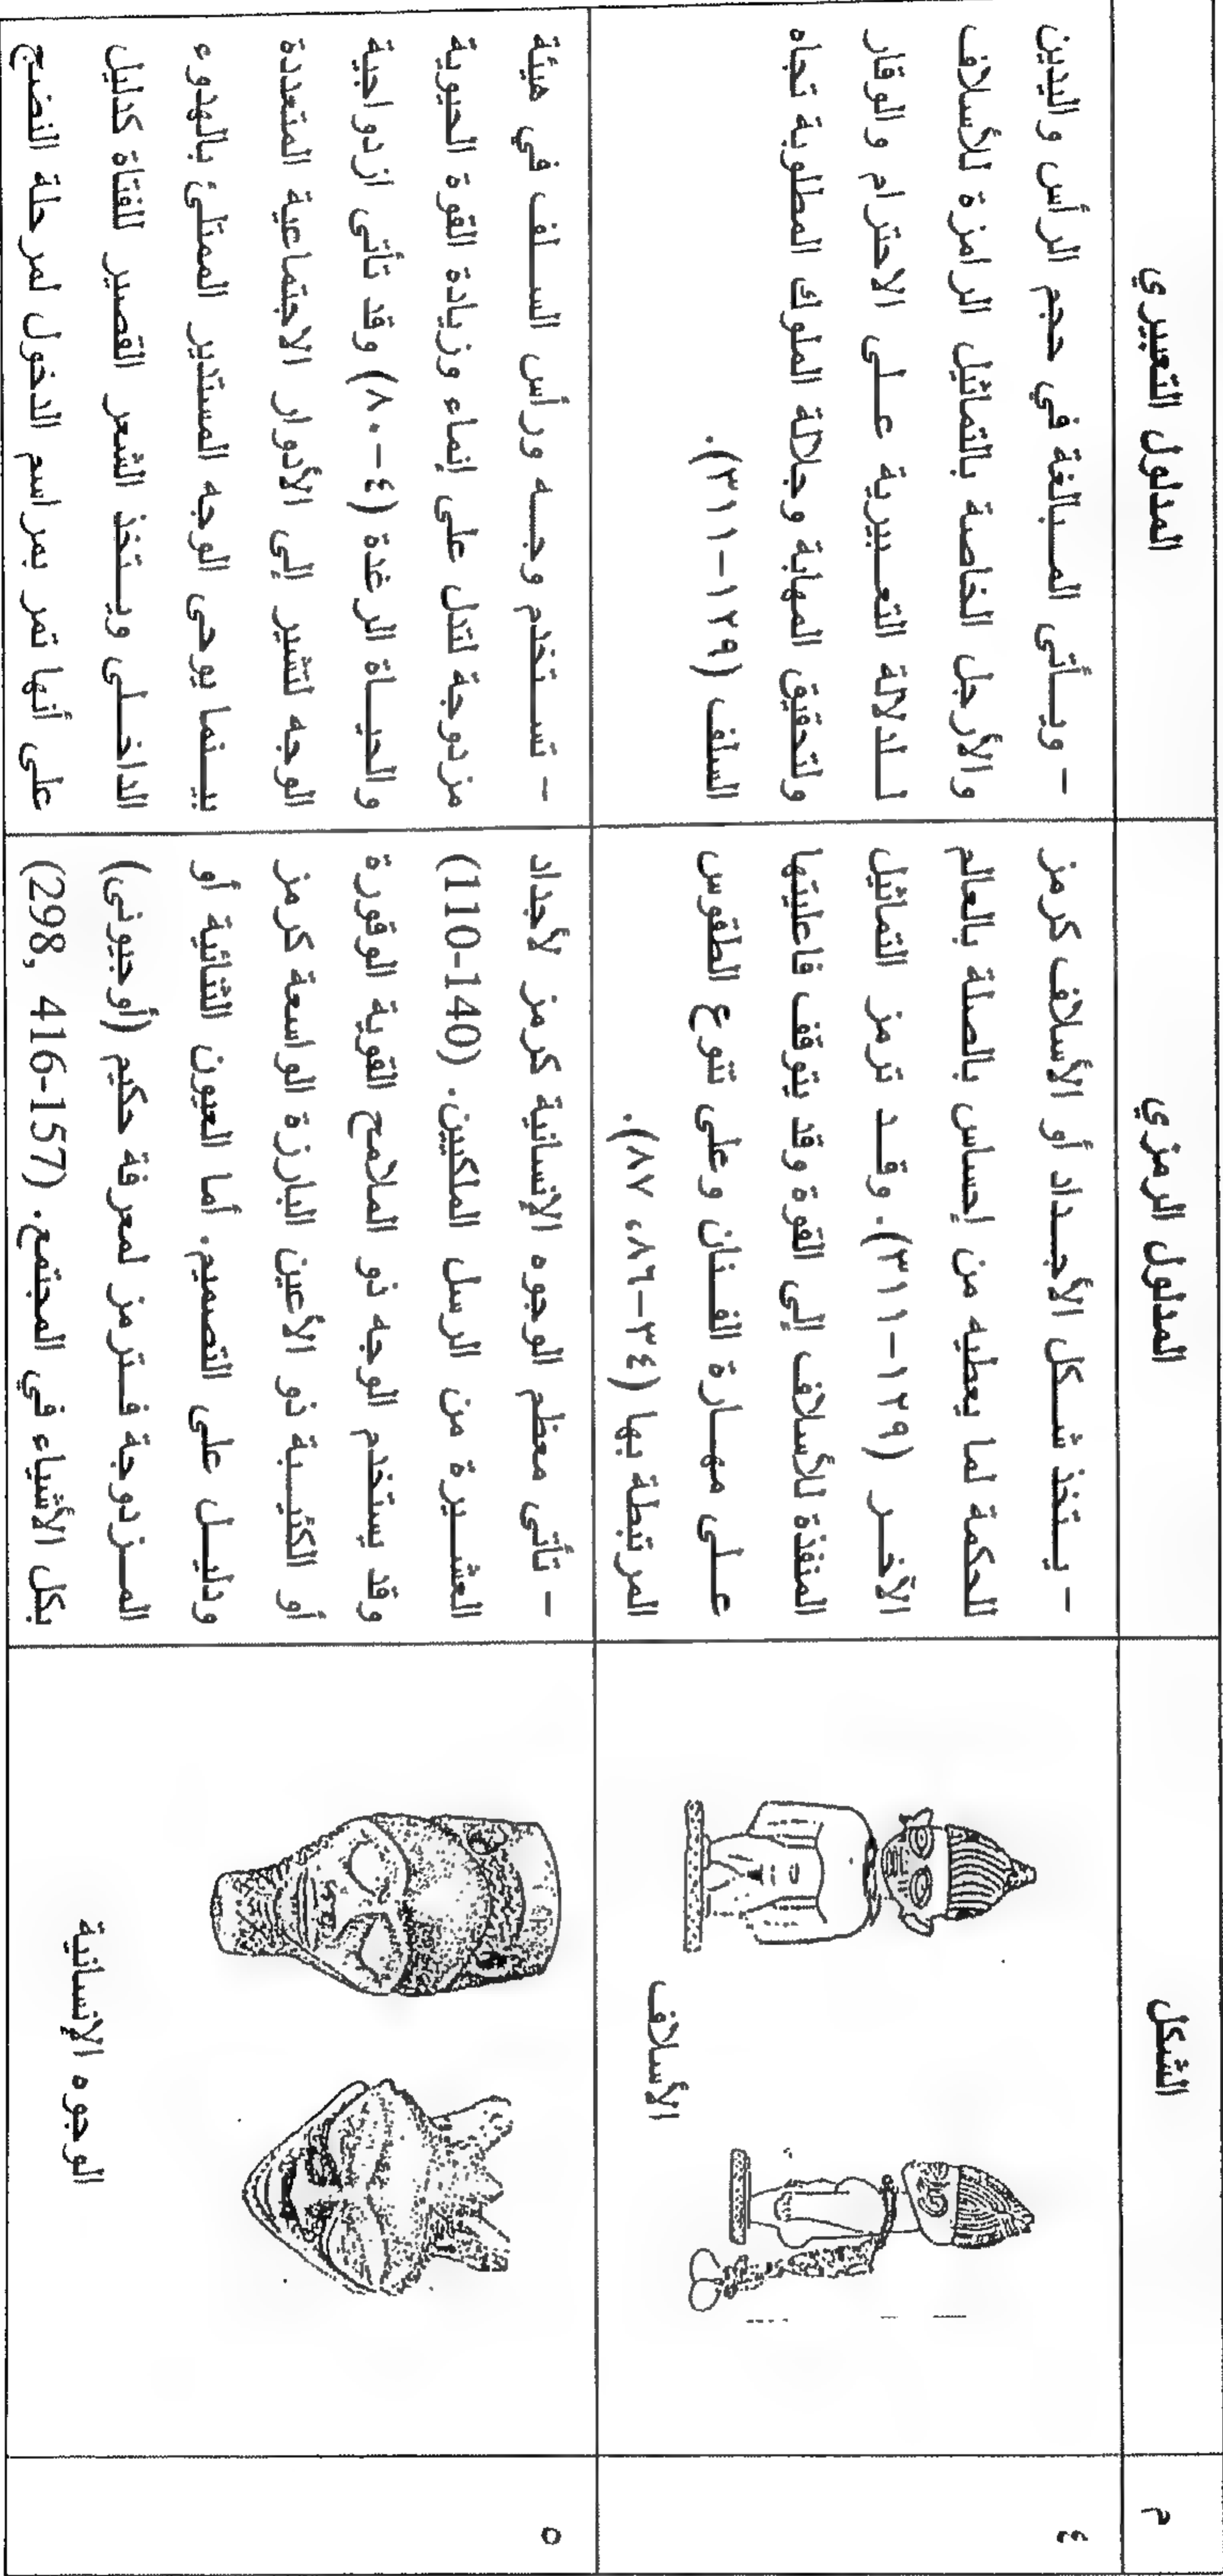 م
الشكل
المدلول الرمزي
المدلول التعبيري
٤
الأسلاف
- يتخذ شكل الأجداد أو الأسلاف كرمز
للحكمة لما يعطيه من إحساس بالصلة بالعالم
الآخر (١٢٩-٣١١). وقد ترمز التماثيل
المنفذة للأسلاف إلى القوة وقد يتوقف فاعليتها
على مهارة الفنان وعلى تنوع الطقوس
المرتبطة بها (٣٤-٨٦، ٨٧).
- ويأتى المبالغة في حجم الرأس واليدين
والأرجل الخاصة بالتماثيل الرامزة للأسلاف
لدلالة التعبيرية على الاحترام والوقار
ولتحقيق المهابة وجلالة الملوك المطلوبة تجاه
السلف (١٢٩-٣١١).
٥
الوجوه الإنسانية
- تأتى معظم الوجوه الإنسانية كرمز لأجداد
العشيرة من الرسل الملكيين. (110-140)
وقد يستخدم الوجه ذو الملامح القوية الوقورة
أو الكئيبة ذو الأعين البارزة الواسعة كرمز
ودليل على التصميم. أما العيون الثنائية أو
المزدوجة فترمز لمعرفة حكيم (أوجيونى)
بكل الأشياء في المجتمع. (157-416 ,298)
- تستخدم وجه ورأس السلف في هيئة
مزدوجة لتدل على إنماء وزيادة القوة الحيوية
والحياة الرغدة (٤-٨٠) وقد تأتى ازدواجية
الوجه لتشير إلى الأدوار الاجتماعية المتعددة
بينما يوحى الوجه المستدير الممتلئ بالهدوء
الداخلى ويتخذ الشعر القصير للفتاة كدليل
على أنها تمر بمراسم الدخول لمرحلة النضج